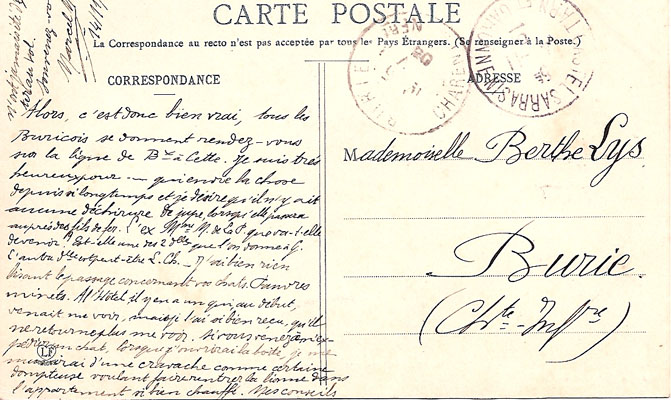 CARTE POSTALE
La Correspondance au recto n'est pas acceptée par tous les Pays Étrangers. (Se renseigner à la Poste.)
CORRESPONDANCE
ADRESSE
Alors, c'est donc bien vrai, tous les
Buricois se donnent rendez-vous
sur la ligne de Bx à Cette. Je suis très
heureux pour qui endre la chose
depuis si longtemps et je désire qu'il n'y ait
aucune déchirure de jupe, lorsqu'elle passera
auprès des fils de fer. L'ex Mme M. de la P. que va-t-elle
devenir? Est-elle une des 2 delles que l'on donne à G.
L'autre peut-être L. Ch. J'ai bien rien
lisant le passage concernant vos chats. Pauvres
minets. A l'Hôtel il y en a un qui, au début,
venait me voir, mais je l'ai si bien reçu, qu'il
ne retourne plus me voir. Si vous venez m'ex-
pédier un chat, lorsque j'ouvrirai la boîte, je me
munirai d'une cravache comme certaine
dompteuse voulant faire rentrer la lionne dans
l'appartement si bien chauffé. Mes conseils
Mademoiselle Berthe Lys
Burie.
(Chte-Infre)
Marcel
14/11
souvenir
BURIE
CHARENTE
SARRASIN
LF